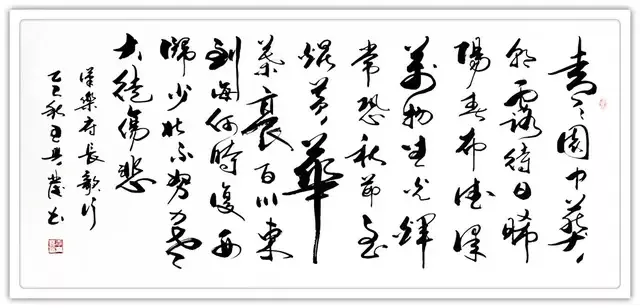 青々園中葵
朝露待日晞
陽春布德澤
萬物生光輝
常恐秋節至
焜黃華
葉衰百川東
到海何時復西
歸少壯不努力老
大徒傷悲
漢樂府長歌行
秋王興